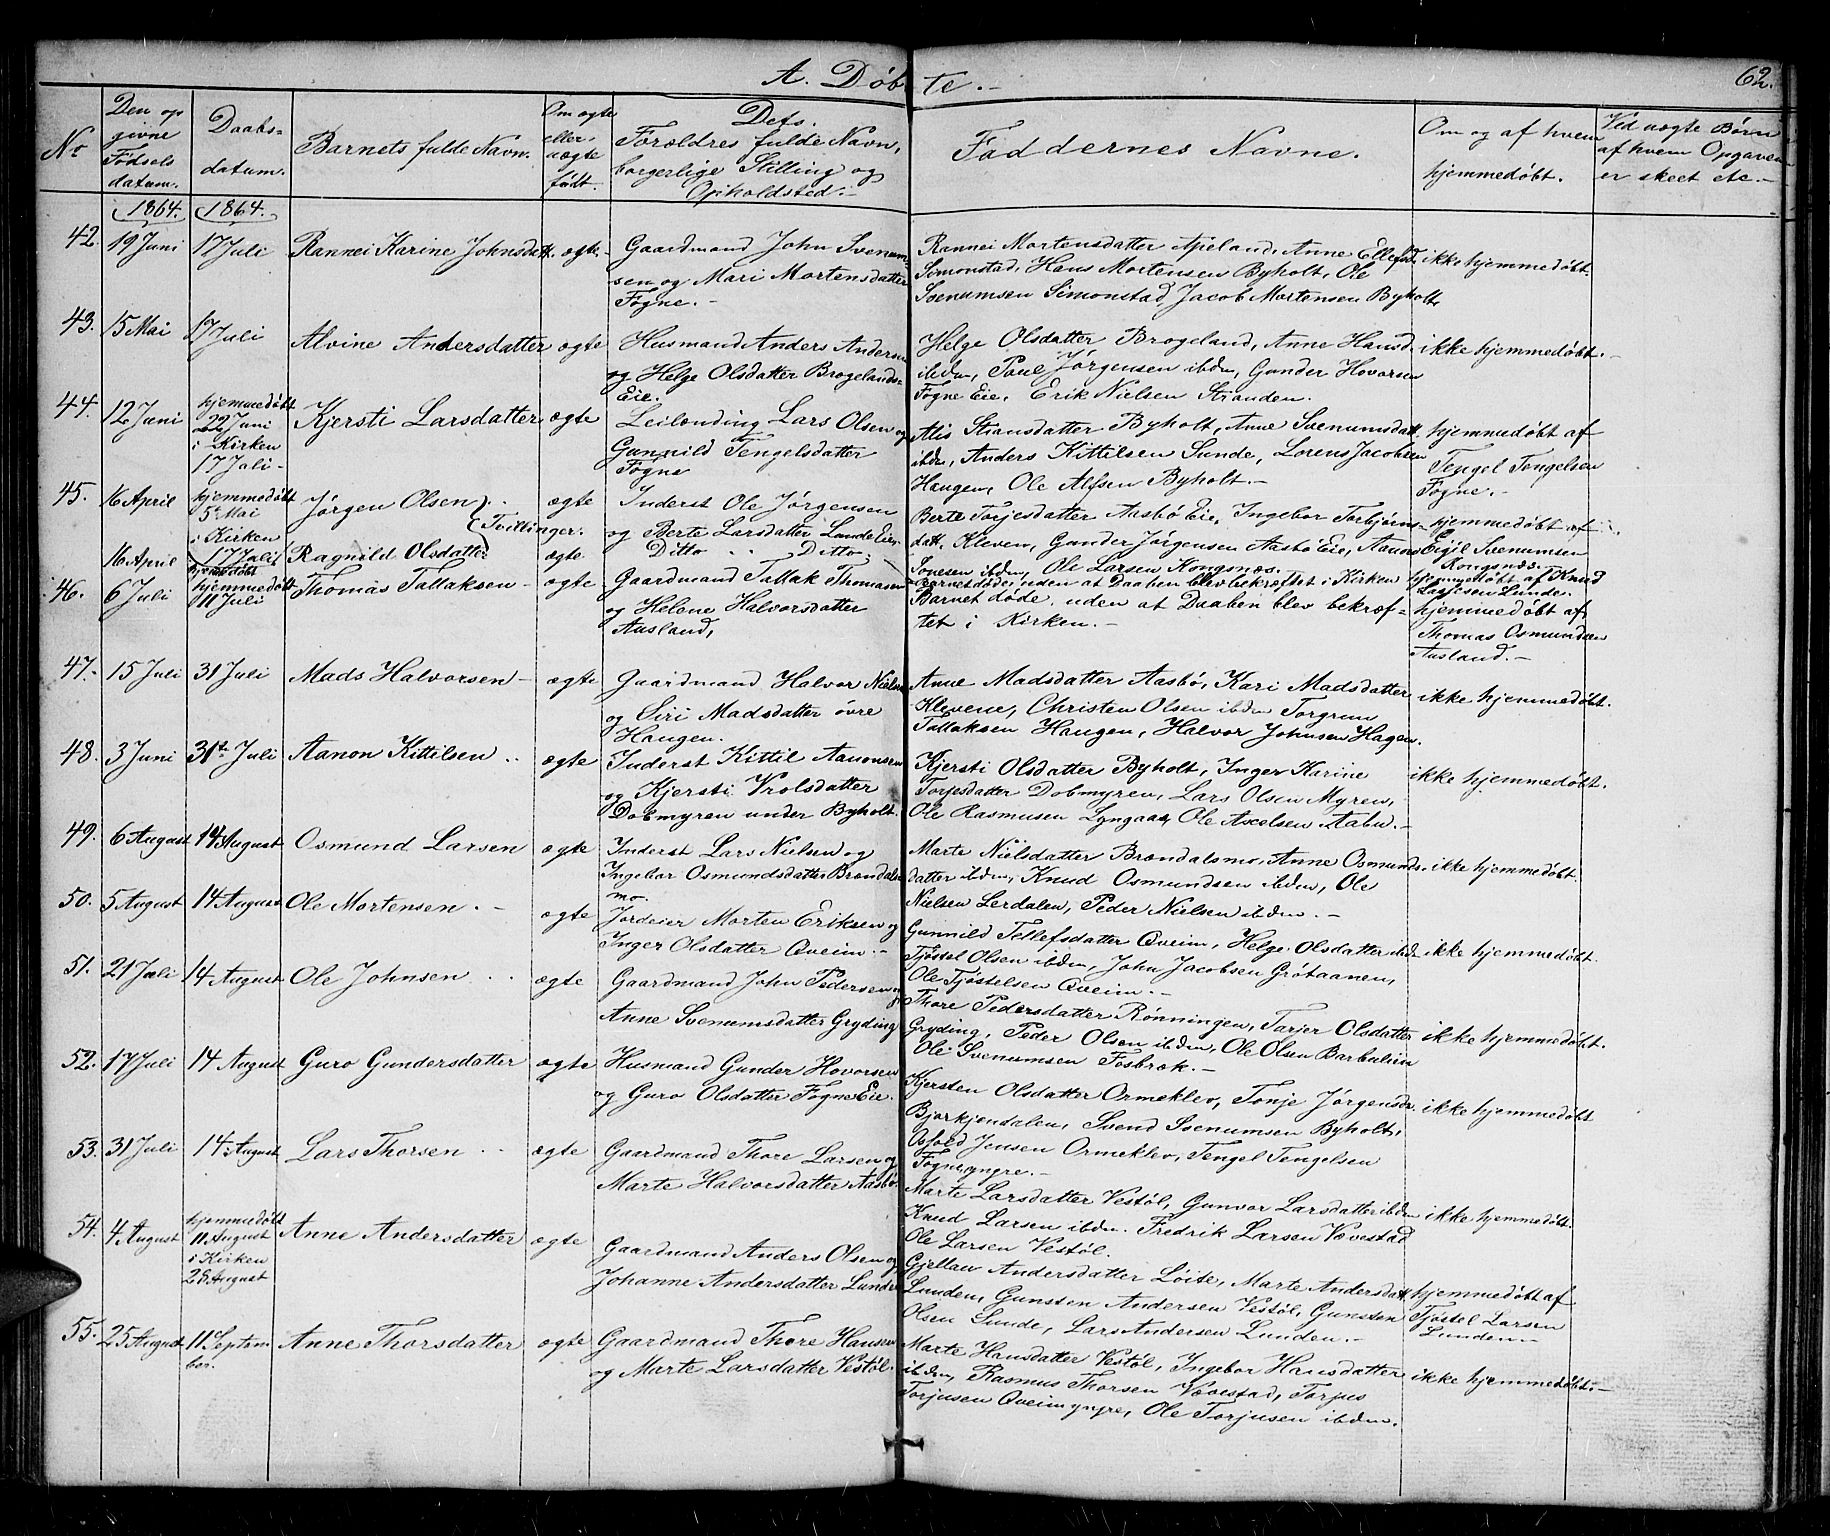 A. Døbte.-
62.
No
Den opgivne Fødselsdatum.
Daabsdatum.
Barnets fulde Navn.
Om ægte eller uægte født.
Dets Forældres fulde Navn, borgerlige Stilling og Opholdsted.-
Faddernes Navne.
Om og af hvem hjemmedøbt.
Ved uægte Børn af hvem Opgaven er skeet etc.-
1864. 1864.
42. 19 Juni 17 Juli Rannei Karine Johnsdatt. ægte.
Gaardmand John Svenum-
sen og Mari Mortensdatter
Fogne.-
Rannei Mortensdatter Apeland, Anne Ellefsd.
Simonstad, Hans Mortensen Byholt, Ole
Svenumsen Simonstad, Jacob Mortensen Byholt
ikke hjemmedøbt.
43. 15 Mai 17 Juli Alvine Andersdatter ægte
Husmand Anders Andersen
og Helge Olsdatter Brogelands-
Eie.
Helge Olsdatter Brogeland, Anne Hansd.
ibdn, Poul Jørgensen ibdn, Gunder Hovorsen
Fogne Eie, Erik Nielsen Stranden.
ikke hjemmedøbt.-
44. 12 Juni
hjemmedøbt
22 Juni
i Kirken
17 Juli-
Kjersti Larsdatter ægte
Leilænding Lars Olsen og
Gunnild Tengelsdatter
Fogne
Alis Stiansdatter Byholt, Anne Svenumsdatt.
ibdn, Anders Kittilsen Sunde, Lorens Jacobsen
Haugen, Ole Alfsen Byholt.-
hjemmedøbt af
Tengel Tengelsen
Fogne.-
45. 16 April
hjemmedøbt
5te Mai
i Kirken
17 Juli
Jørgen Olsen
Tvillinger.
ægte
Inderst Ole Jørgensen
og Berte Larsdatter Lunde Eie.
Berte Torjesdatter Aasbø Eie, Ingebor Torbjørns-
datt. Kleven, Gunder Jørgensen Aasbø Eie, Aanon
Ionesen ibdn, Ole Larsen Kongsnæs.
hjemmedøbt af
Eigil Svenumsen
Kongsnæs.
16 April hjemmedøbt Ragnild Olsdatter ægte
Ditto Ditto
Barnet døde, uden at Daaben blev bekræftet i Kirken
hjemmedøbt af Knud
Larsen Lunde.
46. 6 Juli
hjemmedøbt
11 Juli
Thomas Tallaksen- ægte
Gaardmand Tallak Thomasen
og Helene Halvorsdatter
Ausland,
Barnet døde, uden at Daaben blev bekræf-
tet i Kirken.-
hjemmedøbt af
Thomas Osmundsen
Ausland.-
47. 15 Juli 31 Juli Mads Halvorsen- ægte
Gaardmand Halvor Nielsen
og Siri Madsdatter øvre
Haugen.
Anne Madsdatter Aasbø, Kari Madsdatter
Klevene, Christen Olsen ibdn Torgrim
Tallaksen Haugen, Halvor Johnsen Hagen.
ikke hjemmedøbt.
48. 3 Juni 31te Juli Aanon Kittilsen ægte
Inderst Kittil Aanonsen
og Kjersti Vrolsdatter
Dobmyren under Byholt.
Kjersti Olsdatter Byholt, Inger Karine
Torjesdatter Dobmyren, Lars Olsen Myren,
Ole Rasmusen Lyngaas, Ole Axelsen Aabu.-
ikke hjemmedøbt.
49. 6 August 14 August Osmund Larsen ægte
Inderst Lars Nielsen og
Ingebor Osmundsdatter Brændals-
mo.
Marte Nielsdatter Brændalsmo, Anne Osmunds-
datter ibdn, Knud Osmundsen ibdn, Ole
Nielsen Lerdalen, Peder Nielsen ibdn.-
ikke hjemmedøbt.
50. 5 August 14 August Ole Mortensen.- ægte
Jordeier Morten Eriksen og
Inger Olsdatter Qveim.-
Gunnild Tellefsdatter Qveim, Helge Olsdatter ibdn
Tjøstel Olsen ibdn, John Jacobsen Grøtaanen,
Ole Tjøstelsen Qveim.-
ikke hjemmedøbt.
51. 21 Juli 14 August Ole Johnsen ægte
Gaardmand John Pedersen og
Anne Svenumsdatter Gryding
Thore Pedersdatter Rønningen, Tarjer Olsdatter
Gryding, Peder Olsen ibdn, Ole Olsen Barbulien
Ole Svenumsen Fosbrok.-
ikke hjemmedøbt.
52. 17 Juli 14 August Guro Gundersdatter ægte
Husmand Gunder Hovorsen
og Guro Olsdatter Fogne Eie.
Kjersten Olsdatter Ormeklev, Tonje Jørgensdr.
Bjorkjendalen, Svend Svenumsen Byholt,
Jensen Ormeklev, Tengel Tengelsen
Fogne yngre.-
ikke hjemmedøbt
53. 31 Juli 14 August Lars Thorsen ægte
Gaardmand Thore Larsen og
Marte Halvorsdatter Aasbø.
Marte Larsdatter Vestøl, Gunvor Larsdatter ibdn
Knud Larsen ibdn. Fredrik Larsen Vovestad
Ole Larsen Vestøl.
ikke hjemmedøbt.
54. 4 August
hjemmedøbt
11 August
i Kirken
28 August
Anne Andersdatter ægte
Gaardmand Anders Olsen og
Johanne Andersdatter Lunden
Gjellau Andersdatter Løite, Marte Andersdatt.
Lunden, Gunsten Andersen Vestøl, Gunsten
Olsen Sunde, Lars Andersen Lunden.-
hjemmedøbt af
Tjøstel Larsen
Lunden.-
55. 25 August
11 Septem
ber.
Anne Thorsdatter ægte
Gaardmand Thore Hansen
og Marte Larsdatter Vestøl.
Marte Hansdatter Vestøl, Ingebor Hansdatter
ibdn, Rasmus Thorsen Vovestad, Torjus
Torjusen Qveim yngre, Ole Torjusen ibdn.
ikke hjemmedøbt.-